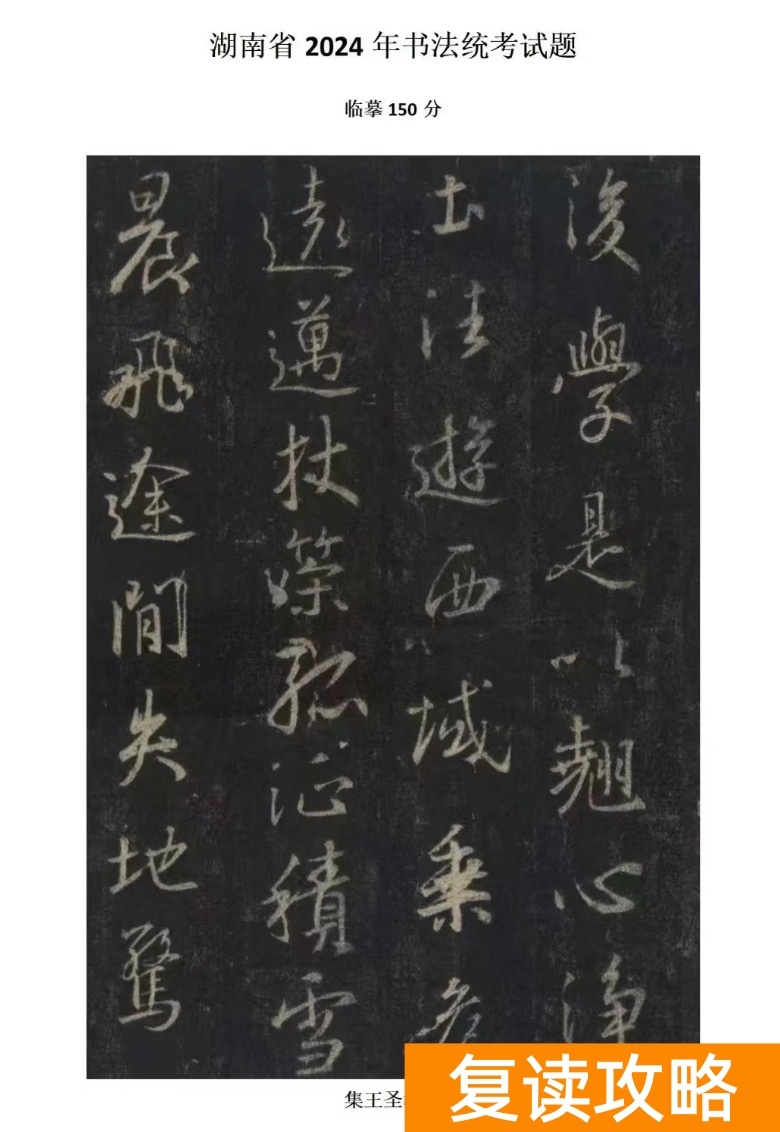 湖南省 2024 年书法统考试题
临摹 150 分
後學是以翹心淨
土往遊西域乘危
遠邁杖策孤征積雪
晨飛途閒失地驚
集王圣
复读攻略